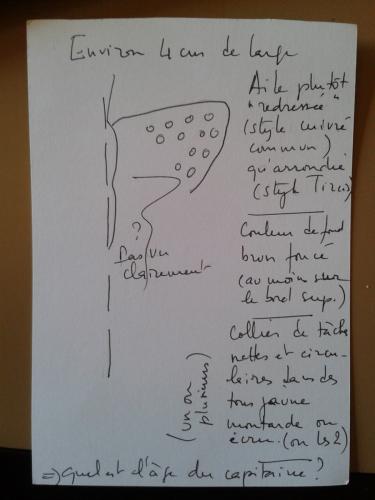 Environ 4 cm de large
Aile plutôt
"redressée"
(style cuivré
commun)
qu'arrondie
(style Tircis)
Couleur de fond
brun foncé
(au moins sur
le bord sup.)
?
Pas vu
clairement
Collier de tâches
nettes et circu-
laires dans des
tons jaune
moutarde ou
écru. (ou les 2)
(un ou
plusieurs)
=> Quel est l'âge du capitaine ?